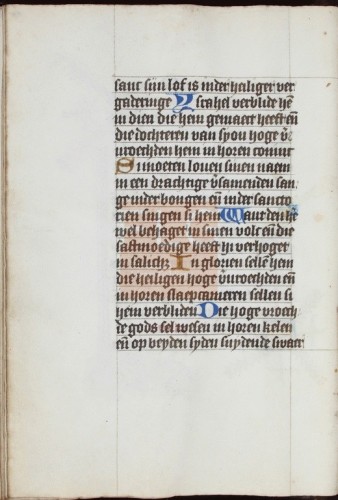 sanc sijn lof is inder heiliger ver
gaderinge Israhel verblide hē
in dien die hem gemaect heeft eñ
die dochteren van syon hoge v̄
vroechden hem in horen coninc
Si moeten louen sinen naem
in een drachtige v̄samenden san
ge inder bongen eñ inder sancto
rien singen si hem Want den hē
wel behaget in sinen volc eñ die
sastmoedige heeft hi verhoget
in salich Jn glorien sellē hem
die heiligen hoge v̄vroechden eñ
in horen slaepcameren sellen si
hem verbliden Die hoge vroech
de gods sel wesen in horen kelen
eñ op beyden syden snydende swaer